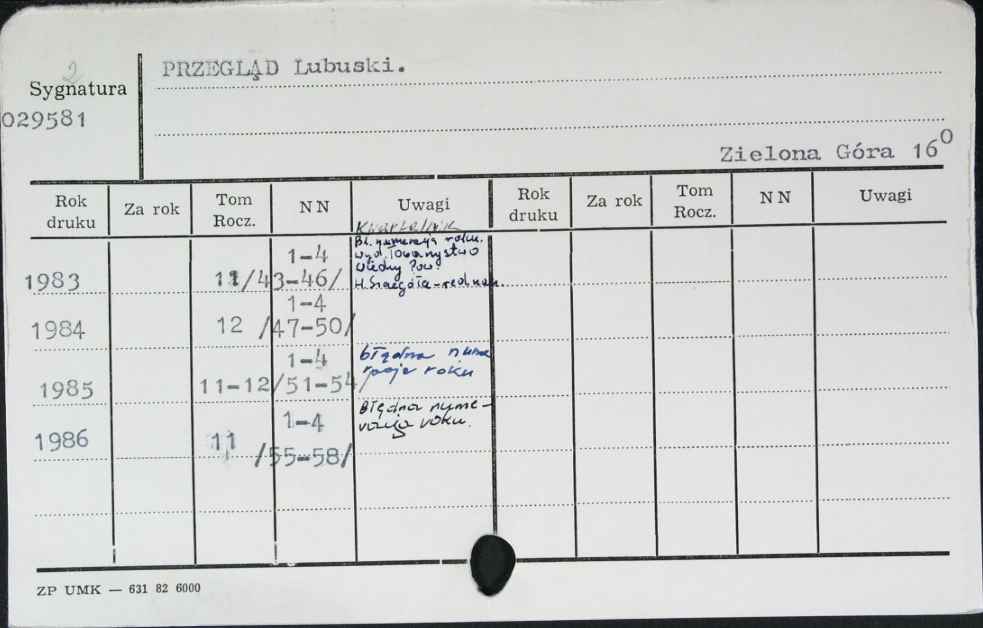 2
PRZEGLĄD Lubuski.
Sygnatura
029581
Zielona Góra 16⁰
Rok druku Za rok Tom Rocz. NN Uwagi Rok druku Za rok Tom Rocz. NN Uwagi
Kwartalnik
Bł. numeracja roku.
1-4 wyd. Towarzystwo
1983 11/43-46/
1-4
1984 12 /47-50/
1-4 błędna nume
1985 11-12/51-54/ racja roku
1-4 Błędna nume-
1986 11 racja roku.
/55-58/
ZP UMK — 631 82 6000